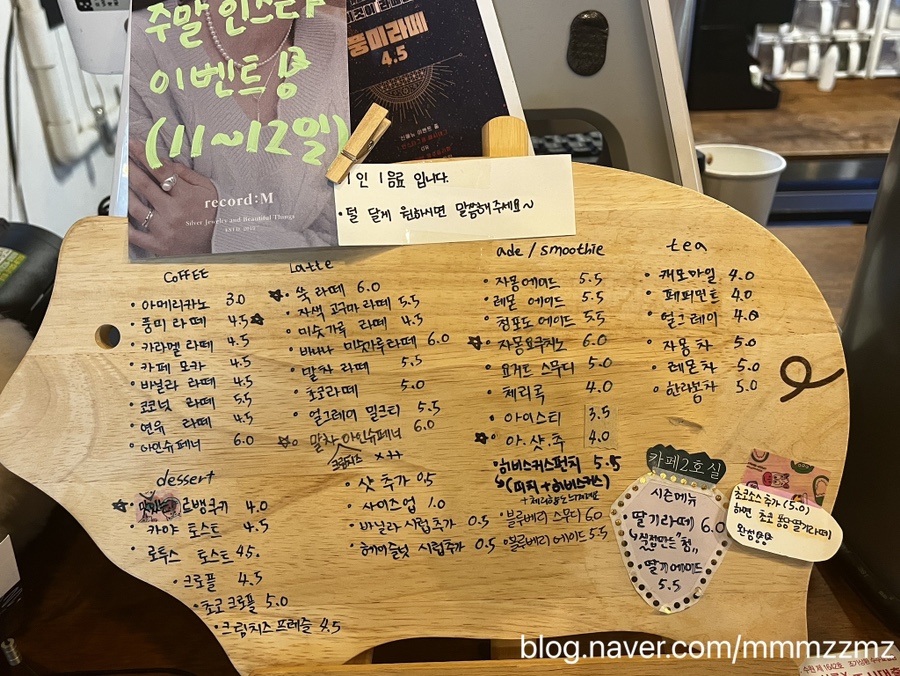 주말 인스타
이벤트
(11~12일)
record:M
Silver Jewelry and Beautiful Things
풍미라떼
4.5
1인 1음료 입니다.
• 덜 달게 원하시면 말씀해주세요~
COFFEE
• 아메리카노 3.0
• 풍미 라떼 4.5
• 카라멜 라떼 4.5
• 카페 모카 4.5
• 바닐라 라떼 4.5
• 코코넛 라떼 5.5
• 연유 라떼 4.5
• 아인슈페너 6.0
Latte
• 쑥 라떼 6.0
• 자색 고구마 라떼 5.5
• 미숫가루 라떼 4.5
• 바나나 미숫가루라떼 6.0
• 말차 라떼 5.5
• 초코라떼 5.0
• 얼그레이 밀크티 5.5
말차 아인슈페너 6.0
크림치즈
ade / smoothie
• 자몽에이드 5.5
• 레몬 에이드 5.5
• 청포도 에이드 5.5
• 자몽요구치노 6.0
• 요거트 스무디 5.0
• 체리콕 4.0
• 아이스티 3.5
• 아.샷.추 4.0
• 히비스커스펀치 5.5
(피치+히비스커스)
• 블루베리 스무디 6.0
• 블루베리 에이드 5.5
tea
• 캐모마일 4.0
• 페퍼민트 4.0
• 얼그레이 4.0
• 자몽차 5.0
• 레몬차 5.0
• 한라봉차 5.0
dessert
르뱅쿠키 4.0
• 카야 토스트 4.5
• 로투스 토스트 4.5.
• 크로플 4.5
• 초코 크로플 5.0
• 크림치즈 프레즐 4.5
• 샷 추가 0.5
• 사이즈 업 1.0
• 바닐라 시럽추가 0.5
• 헤이즐넛 시럽추가 0.5
카페2호실
시즌메뉴
• 딸기라떼 6.0
직접만든 "청"
• 딸기에이드
5.5
초코소스 추가 (5.0)
하면 초코 퐁당 딸기라떼
완성
blog.naver.com/mmmzzmz